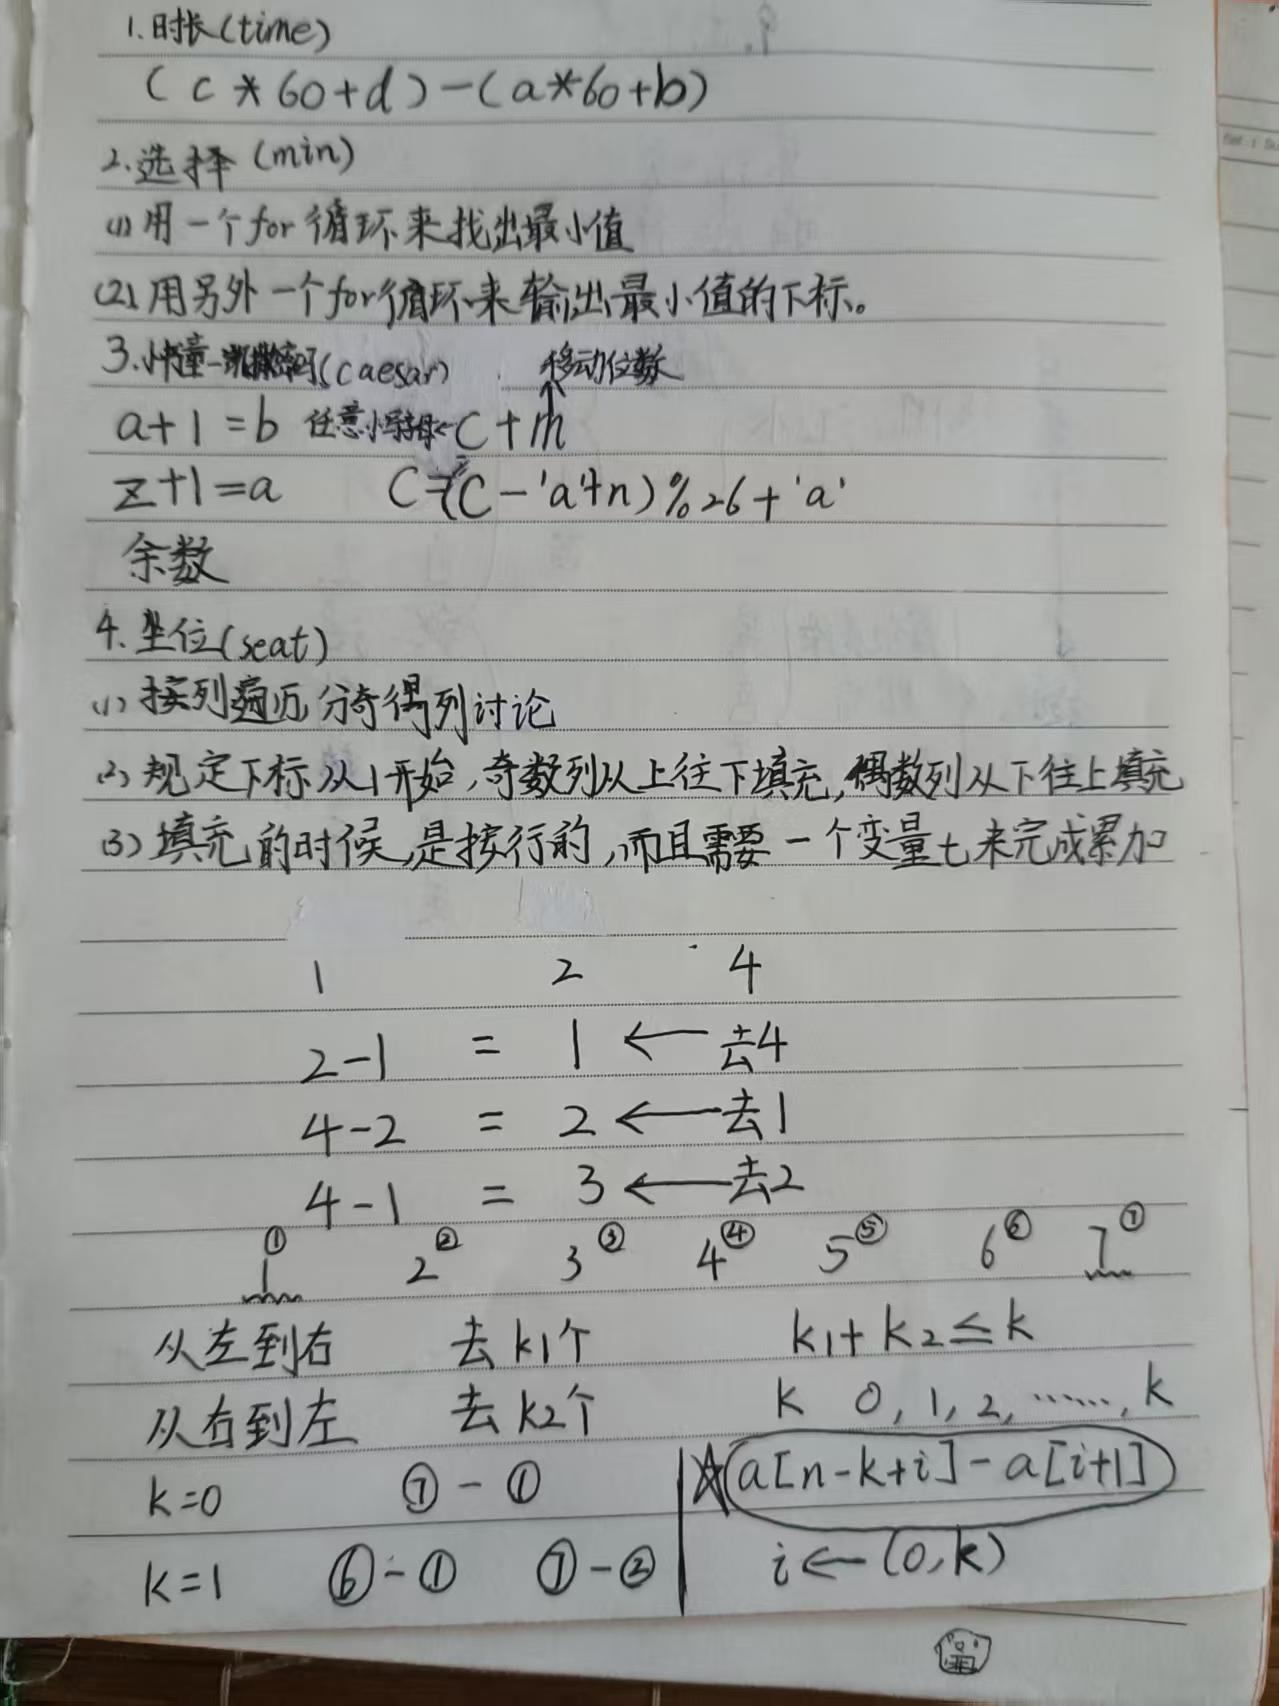 1.时长(time)
(c*60+d)-(a*60+b)
2.选择(min)
(1)用一个for循环来找出最小值
(2)用另外一个for循环来输出最小值的下标。
3.小书童-凯撒密码(caesar) 移动位数
a+1=b 任意小写字母←C+n
z+1=a C=(C-'a'+n)%26+'a'
余数
4.坐位(seat)
(1)按列遍历,分奇偶列讨论
(2)规定下标从1开始,奇数列从上往下填充,偶数列从下往上填充
(3)填充的时候,是按行的,而且需要一个变量t来完成累加
1 2 4
2-1 = 1 ← 去4
4-2 = 2 ← 去1
4-1 = 3 ← 去2
1① 2② 3③ 4④ 5⑤ 6⑥ 7⑦
从左到右 去k1个 k1+k2≤k
从右到左 去k2个 k 0,1,2,……,k
k=0 ⑦-① ☆a[n-k+i]-a[i+1]
k=1 ⑥-① ⑦-② i←(0,k)